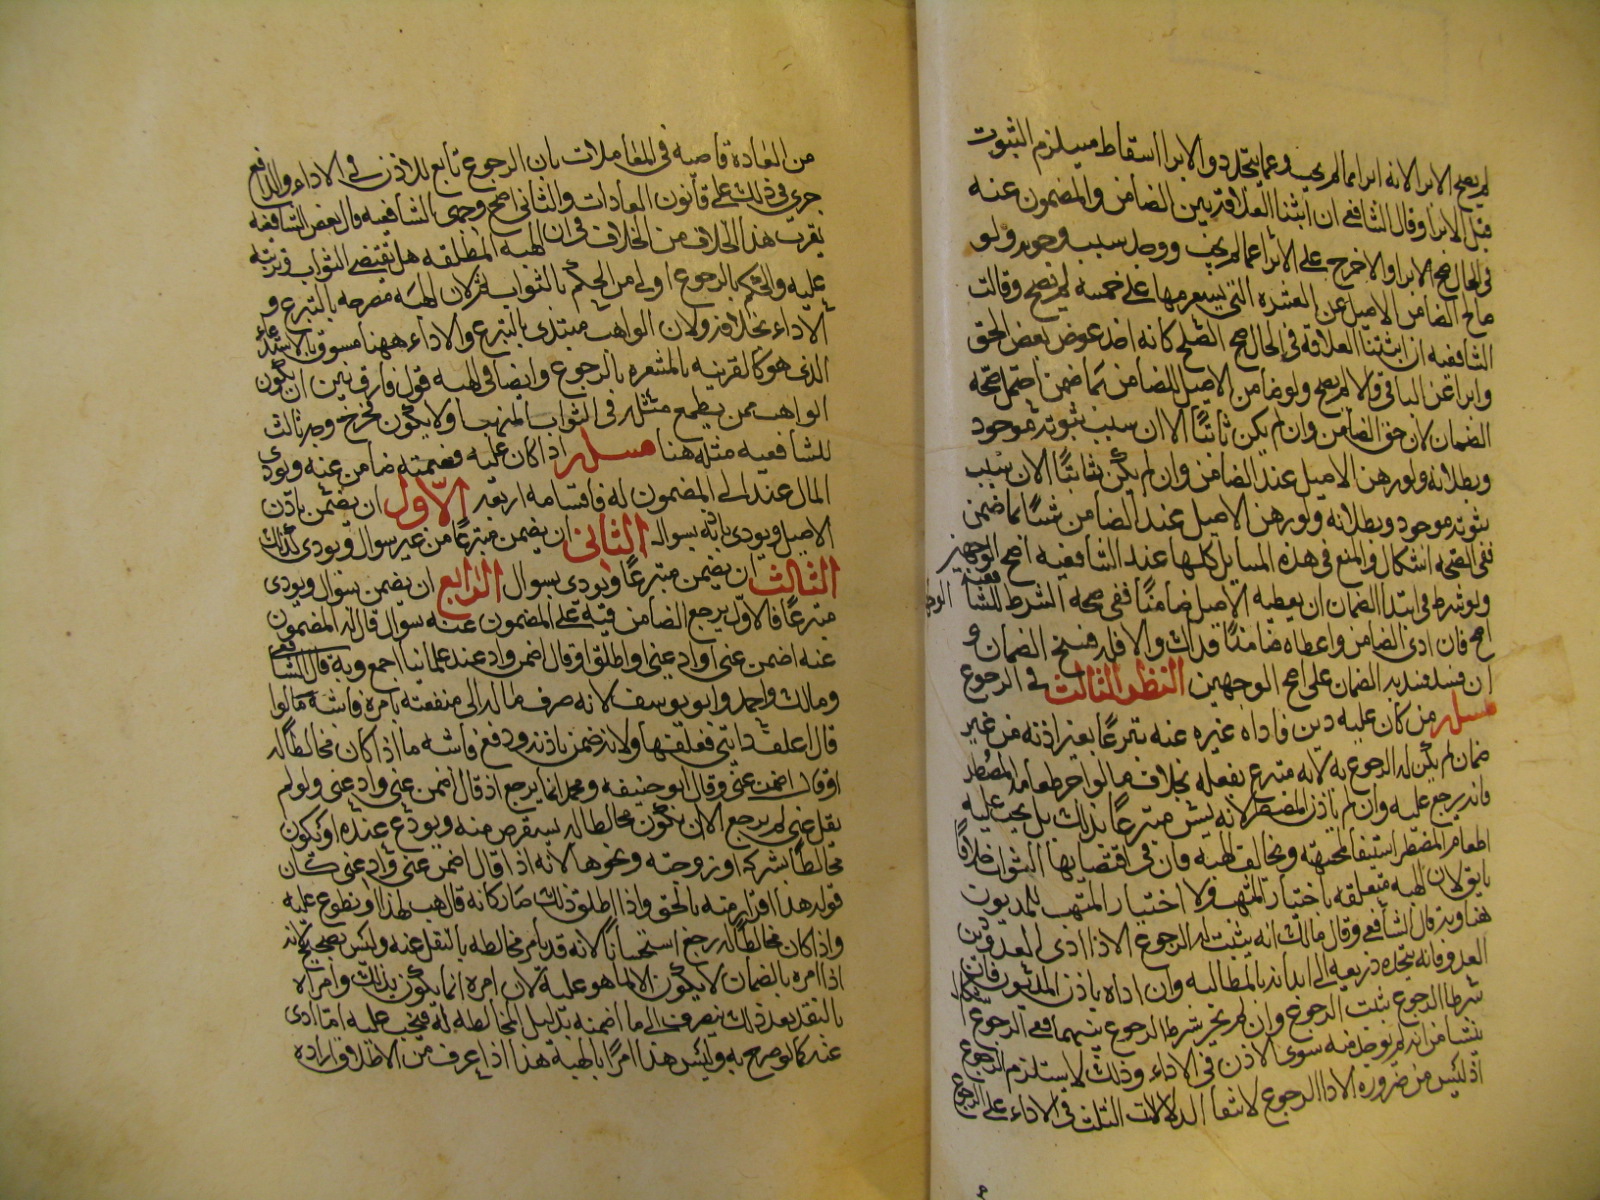 لم يصح الابرا لانه ابرا مما لم يجب وعما يتجدد والابرا اسقاط يستلزم الثبوت
قبل الابرا وقال الشافعي ان اثبتنا العلاقة بين الضامن والمضمون عنه
في الحال صح الابرا والا خرج على الابرا عما لم يجب ووجد سبب وجوبه ولو
صالح الضامن الاصيل عن العشره التي على خمسة لم يصح وقالت
الشافعيه ان اثبتنا العلاقة في الحال صح الصلح كانه اخذ عوض بعض الحق
وابرا عن الباقي والا لم يصح ولو ضامن الاصيل للضامن بما ضمن احتمل صحة
الضمان لان حق الضامن وان لم يكن ثابتًا الا ان سبب ثبوته موجود
وبطلانه ولو رهن الاصيل عند الضامن وان لم يكن ثابتًا الا ان سبب
ثبوته موجود وبطلانه ولو رهن الاصيل عند الضامن شيًا بما ضمن
ففي الصحة اشكال والمنع في هذه المسايل كلها عند الشافعية اصح الوجهين
ولو شرط في ابتدا الضمان ان يعطيه الاصيل ضامنًا ففي صحة الشرط للشافعية
اصح فان ادى الضامن واعطاه ضامنًا فذاك والا فله فسخ الضمان و
ان فسد فسد به الضمان على اصح الوجهين النظر الثالث في الرجوع
مسئله من كان عليه دين فاداه غيره عنه تبرعًا بغير اذنه من غير
ضمان لم يكن له الرجوع به لانه متبرع بفعله بخلاف ما لو اوجر طعامه المضطر
فانه يرجع عليه وان لم ياذن المضطر لانه ليس متبرعًا بذلك بل يجب عليه
اطعام المضطر استبقا لمهجته ويخالف الهبة فان في اقتضايها الثواب خلافًا
ياتي لان الهبه متعلقه باختيار المتهب ولا اختيار للمديون
هنا وبه قال الشافعي وقال مالك انه يثبت له الرجوع الا اذا ادى العدو دين
العدو فانه يتخذه ذريعه الى ايذايه بالمطالبه وان اداه باذن المديون فان
شرطا الرجوع ثبت الرجوع وان لم يجر شرط الرجوع بينهما ففي الرجوع اشكال
ينشا من انه لم يوجد منه سوى الاذن في الاداء وذلك لا يستلزم الرجوع
اذ ليس من ضروره الادا الرجوع لانتفا الدلالات الثلث في الاداء على الرجوع
من العادة قاضيه في المعاملات بان الرجوع تابع للاذن في الاداء والدافع
جرى في ذلك على قانون العادات والثاني اصح وجهي الشافعيه وقال بعض الشافعيه
يقرب هذا الخلاف من الخلاف في ان الهبه المطلقه هل تقتضي الثواب
عليه والحكم بالرجوع اولى من الحكم بالثواب ثم لان الهبه مصرحه بالتبرع و
الاداء بخلافه ولان الواهب مبتدى بالتبرع والاداء ههنا مسبوق بالاستدعاء
الذي هو كالقرينه المشعره بالرجوع وايضا في الهبه قول فارق بين ان يكون
الواهب ممن يطمع مثله في الثواب المتهب او لا يكون فخرج وجه ثالث
للشافعيه مثله هنا مسئله اذا كان عليه فضمنه ضامن عنه ويودى
المال عنه الى المضمون له فاقسامه اربعه الاول ان يضمن باذن
الاصيل ويودى باذنه بسواله الثاني ان يضمن متبرعًا من غير سوال ويودى كذلك
الثالث ان يضمن متبرعًا ويودى بسوال الرابع ان يضمن بسوال ويودى
متبرعًا فالاول يرجع الضامن فيه على المضمون عنه سوال قال له المضمون
عنه اضمن عني او اد عني او اطلق او قال اضمن واد عند علمانيا اجمع وبه قال الشافعي
ومالك واحمد وابو يوسف لانه صرف ماله الى منفعته بامره فاشبه ما لو
قال اعلف دابتي فعلفها ولانه ضمن باذنه ودفع فاشبه ما اذا كان مخالطًا له
او قال اضمن عني وقال ابو حنيفه ومحمد انما يرجع اذ قال اضمن عني واد عني ولو لم
يقل عني لم يرجع الا ان يكون مخالطا له يستقرض منه ويودع عنده او يكون
مخالطًا بشركه او زوجته ونحوها لانه اذا قال اضمن عني واد عني كان
قوله هذا اقرار منه بالحق واذا اطلق ذلك صار كانه قال هب لهذا او تطوع عليه
واذا كان مخالطًا له رجع استحسانًا لانه قد يامر مخالطه بالنقل عنه وليس بصحيح لانه
اذا امره بالضمان لا يكون الا لما هو عليه لان امره انما يكون بذلك وامره
بالنقد بعد ذلك ينصرف الى ما ضمنه بدليل المخالطه له فيجب عليه ما ادى
عنه كما لو صرح به وليس هذا امرًا بالهبة هذا اذا عرف من الاطلاق اراده